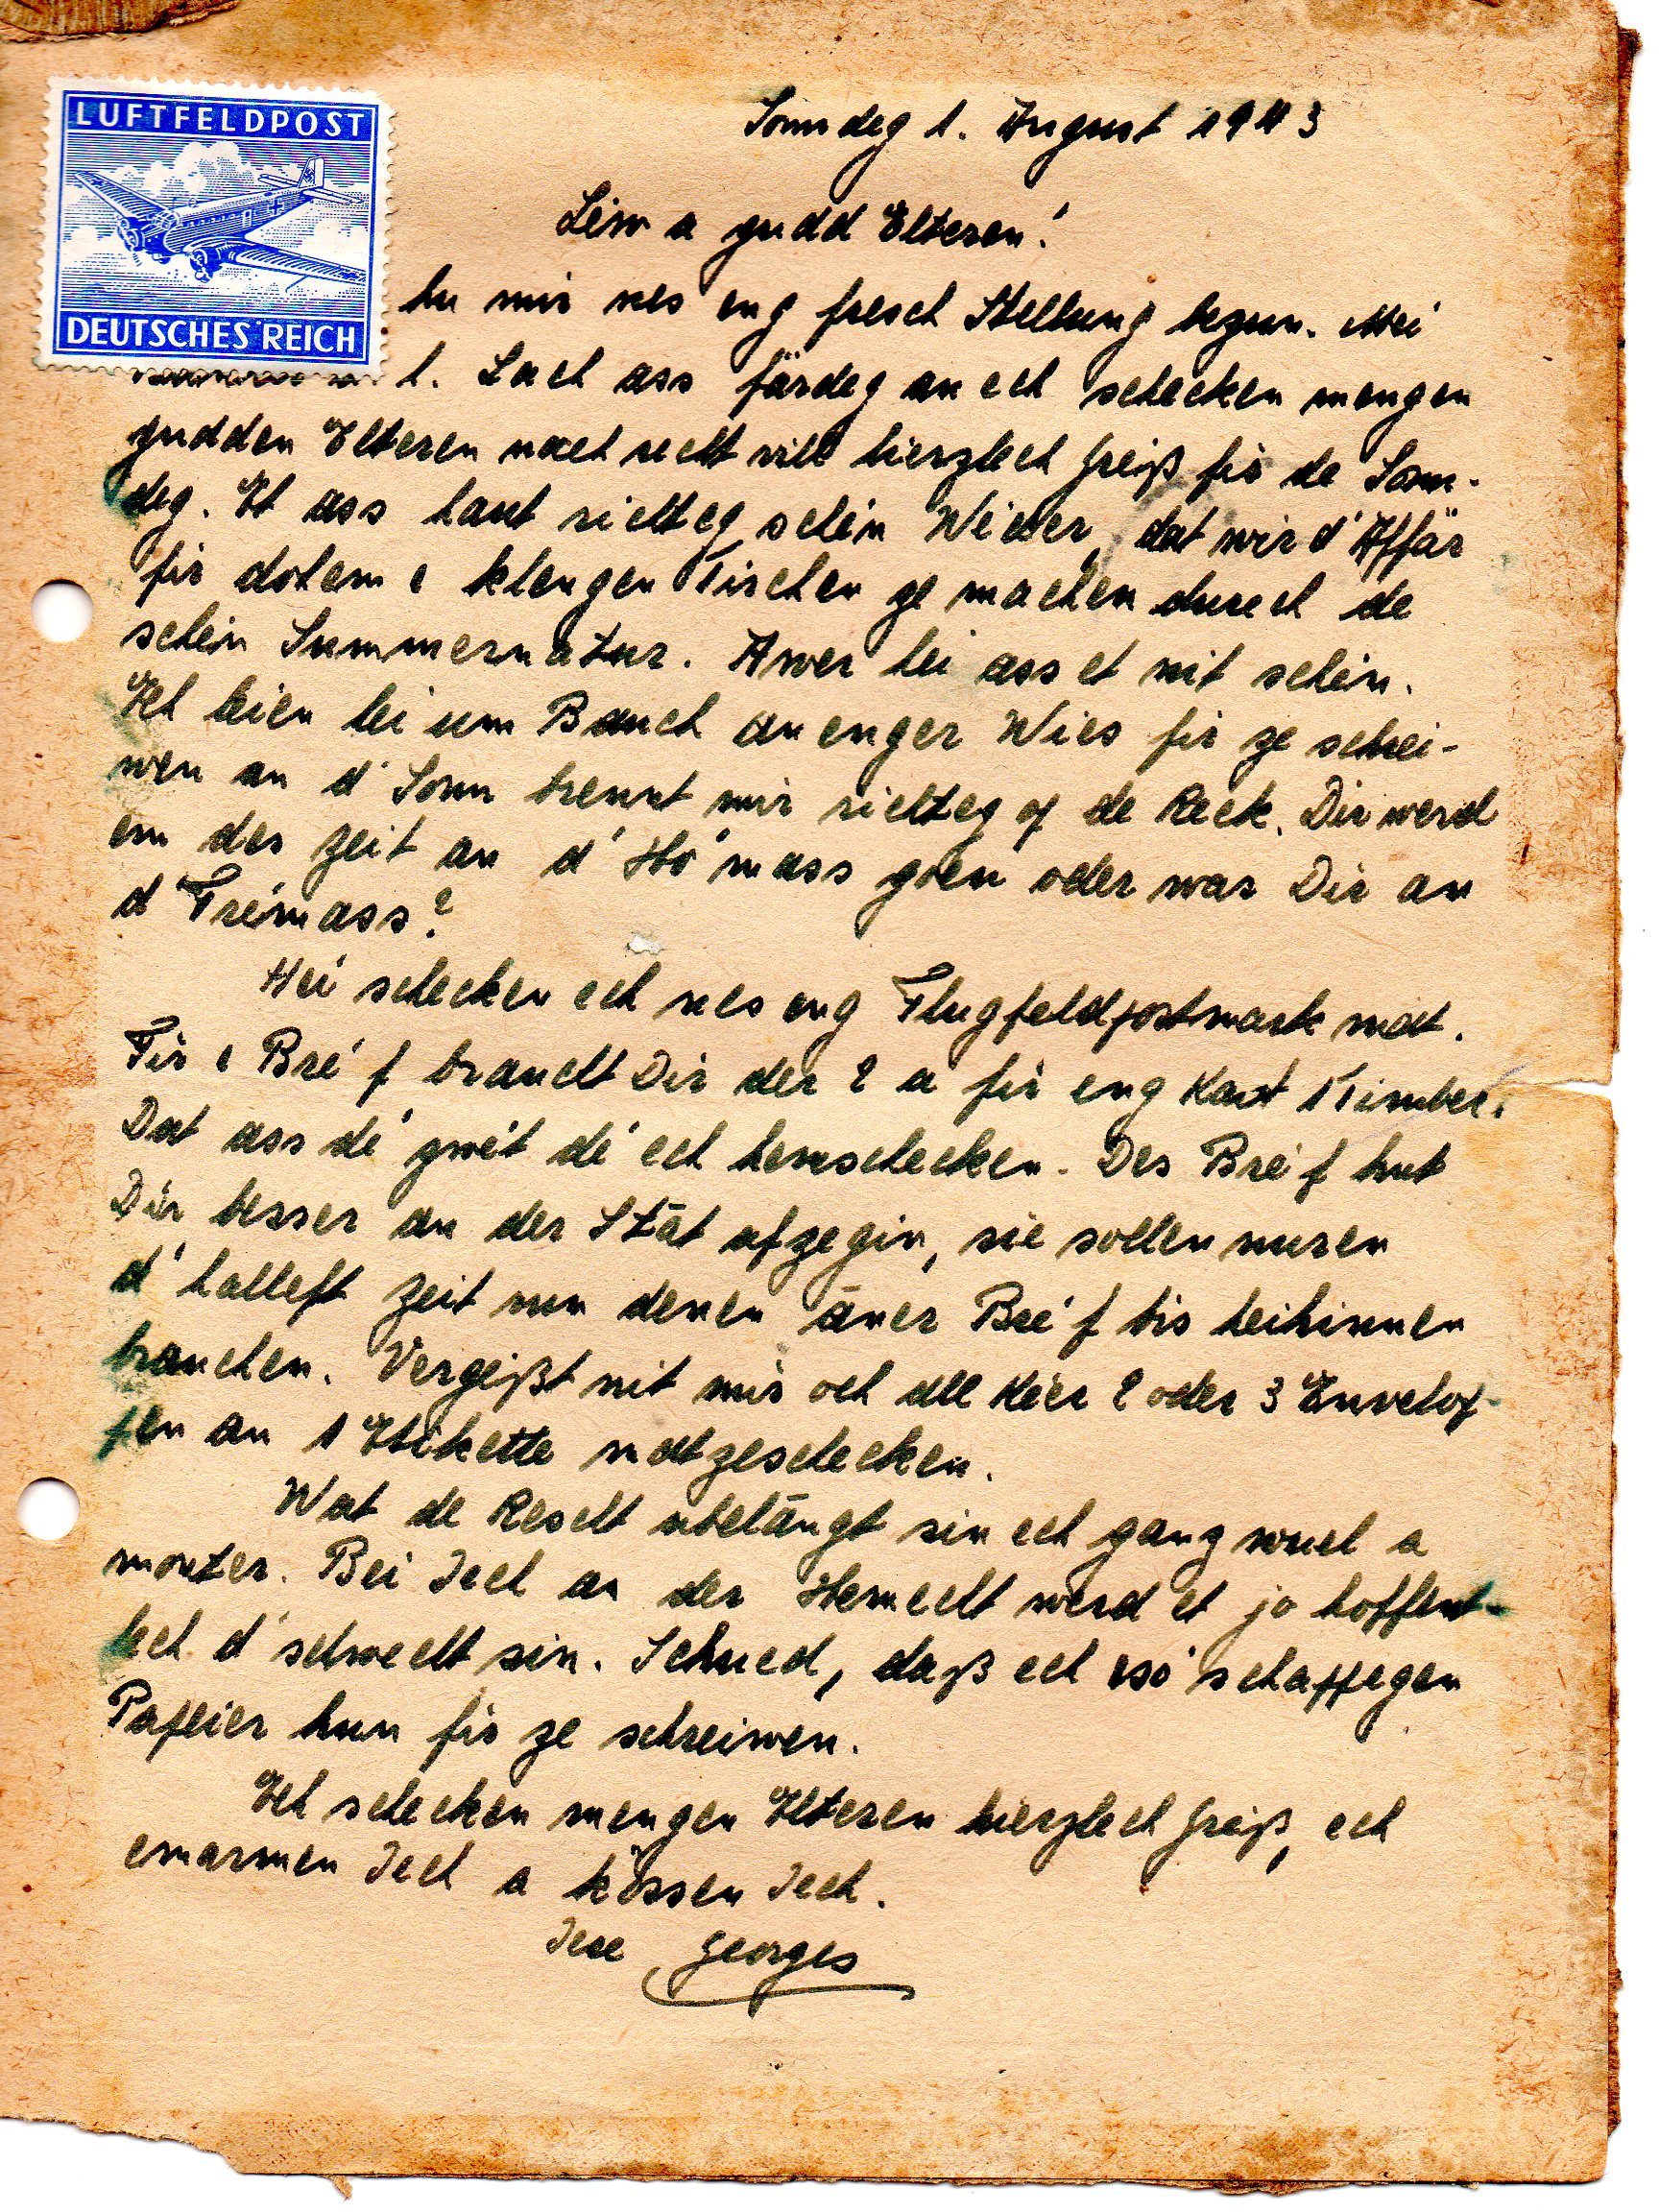 LUFTFELDPOST
DEUTSCHES REICH
Sonndeg 1. August 1943
Léiw a gudd Elteren!
hu mir nes eng fresch Stellung bezun. Mei
l. Lach ass färdeg an ech schecken mengen
gudden Elteren nach recht vill hierzlech Greiß fir de Sonn-
deg. Et ass haut richteg schéin Wieder, dat wir d'Affär
fir dohem e klengen Tirchen ze machen durech de
schéin Summernatur. Awer hei ass et nit schéin.
Ech leien hei um Bauch an enger Wies fir ze schrei-
wen an d'Sonn brennt mir richteg op de Reck. Dir werd
em des Zeit an d'Hó'mass goen oder war Dir an
d'Frémass?
Hei schecken ech nes eng Flugfeldpostmark mat.
Fir e Bré'f braucht Dir der 2 a fir eng Kart 1 Timber.
Dat ass dé' zwét dé' ech hemschecken. Des Bré'f hut
Dir besser an der Stāt ofzegin, sie sollen nuren
d'halleft Zeit vun denen āner Bré'f bis heihinnen
brauchen. Vergeißt nit mir och all Kéer 2 oder 3 Envelop-
pen an 1 Etikette matzeschecken.
Wat de Rescht ubelāngt sin ech ganz wuel a
monter. Bei Iech an der Hemecht werd et jo hoffent-
lech d'selwecht sin. Schued, daß ech esó' schappegen
Papeier hun fir ze schreiwen.
Ech schecken mengen Elteren hierzlech Greiß, ech
emarmen Iech a kössen Iech.
Iere Georges